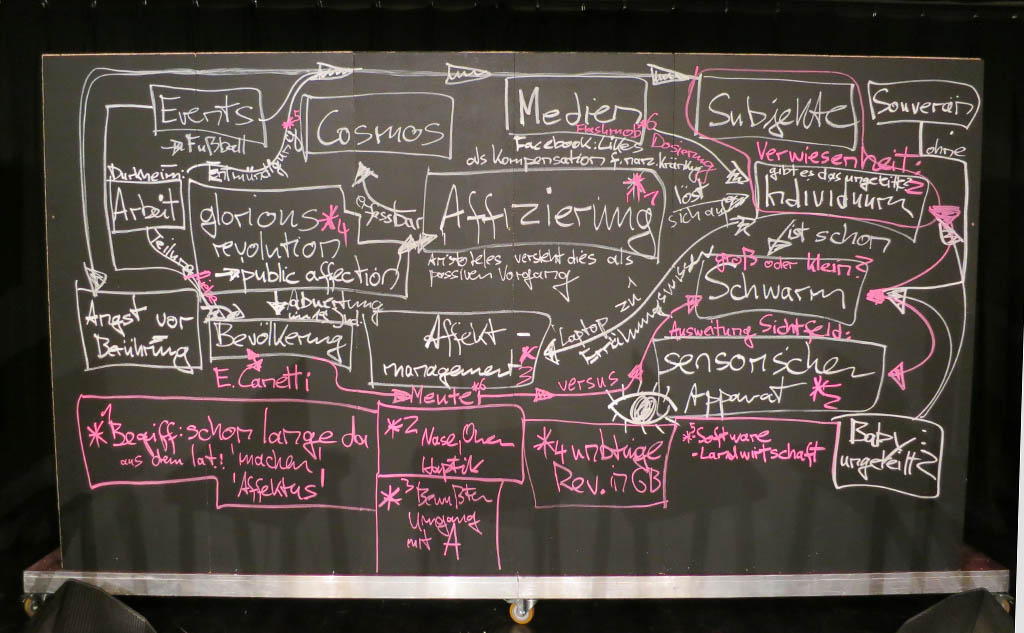 Events
→ Fußball
*5
Entmündigung
Cosmos
Medien
Flashmob *6
Facebook: Likes
als Kompensation f. narz. Kränkung
Dosierung
Subjekte
Souverän
ohne
Verwiesenheit:
gibt es das ungeteilte?
Individuum
Durkheim:
Arbeit
Teilung
glorious *4
revolution
→ public affection
essbar
Affizierung
*1
Aristoteles, versteht dies als
passiven Vorgang
löst
sich auf
ist schon
groß oder klein?
Schwarm
Angst vor
Berührung
Bevölkerung
E. Canetti
Affekt-
management
*3
Laptop
zu
Ausweitung Sichtfeld:
sensorischer
Apparat *2
Meute *6
versus
*1 Begriff: schon lange da
aus dem lat! 'machen'
'Affektus'
*2 Nase, Ohren
Haptik
*3 Bewußten
Umgang
mit A
*4 unblutige
Rev. in GB
*5 Software
- Landwirtschaft
Baby:
ungeteilt?